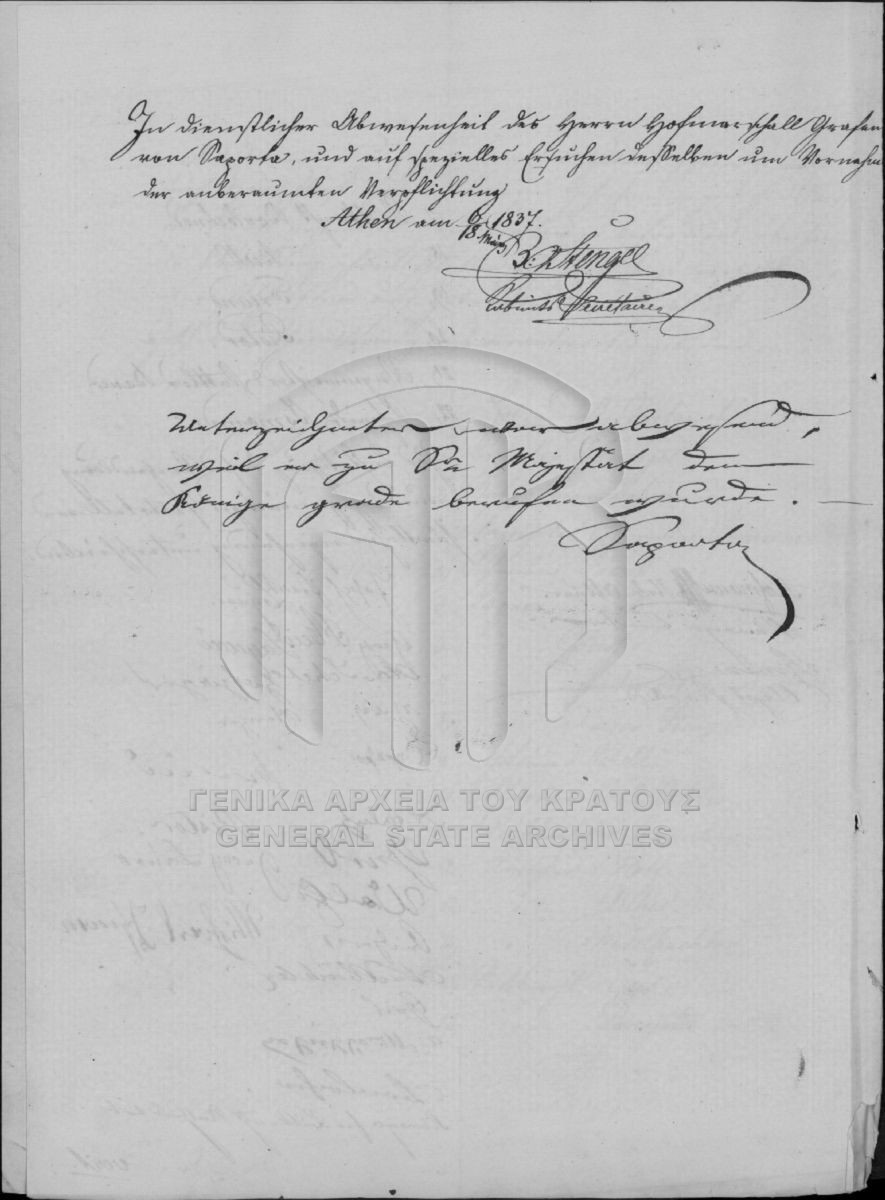 In dienstlicher Abwesenheit des Herrn Hofmarschall Grafen
von Saporta, und auf spezielles Ersuchen desselben um Vornahm
der anberaumten Verpflichtung
Athen am 6/18 März 1837.
Stengel
Kabinets Secretaire
Unterzeichneter war abwesend,
weil er zu Sr Majestät dem
Könige grade berufen wurde.
Saporta
ΓΕΝΙΚΑ ΑΡΧΕΙΑ ΤΟΥ ΚΡΑΤΟΥΣ
GENERAL STATE ARCHIVES